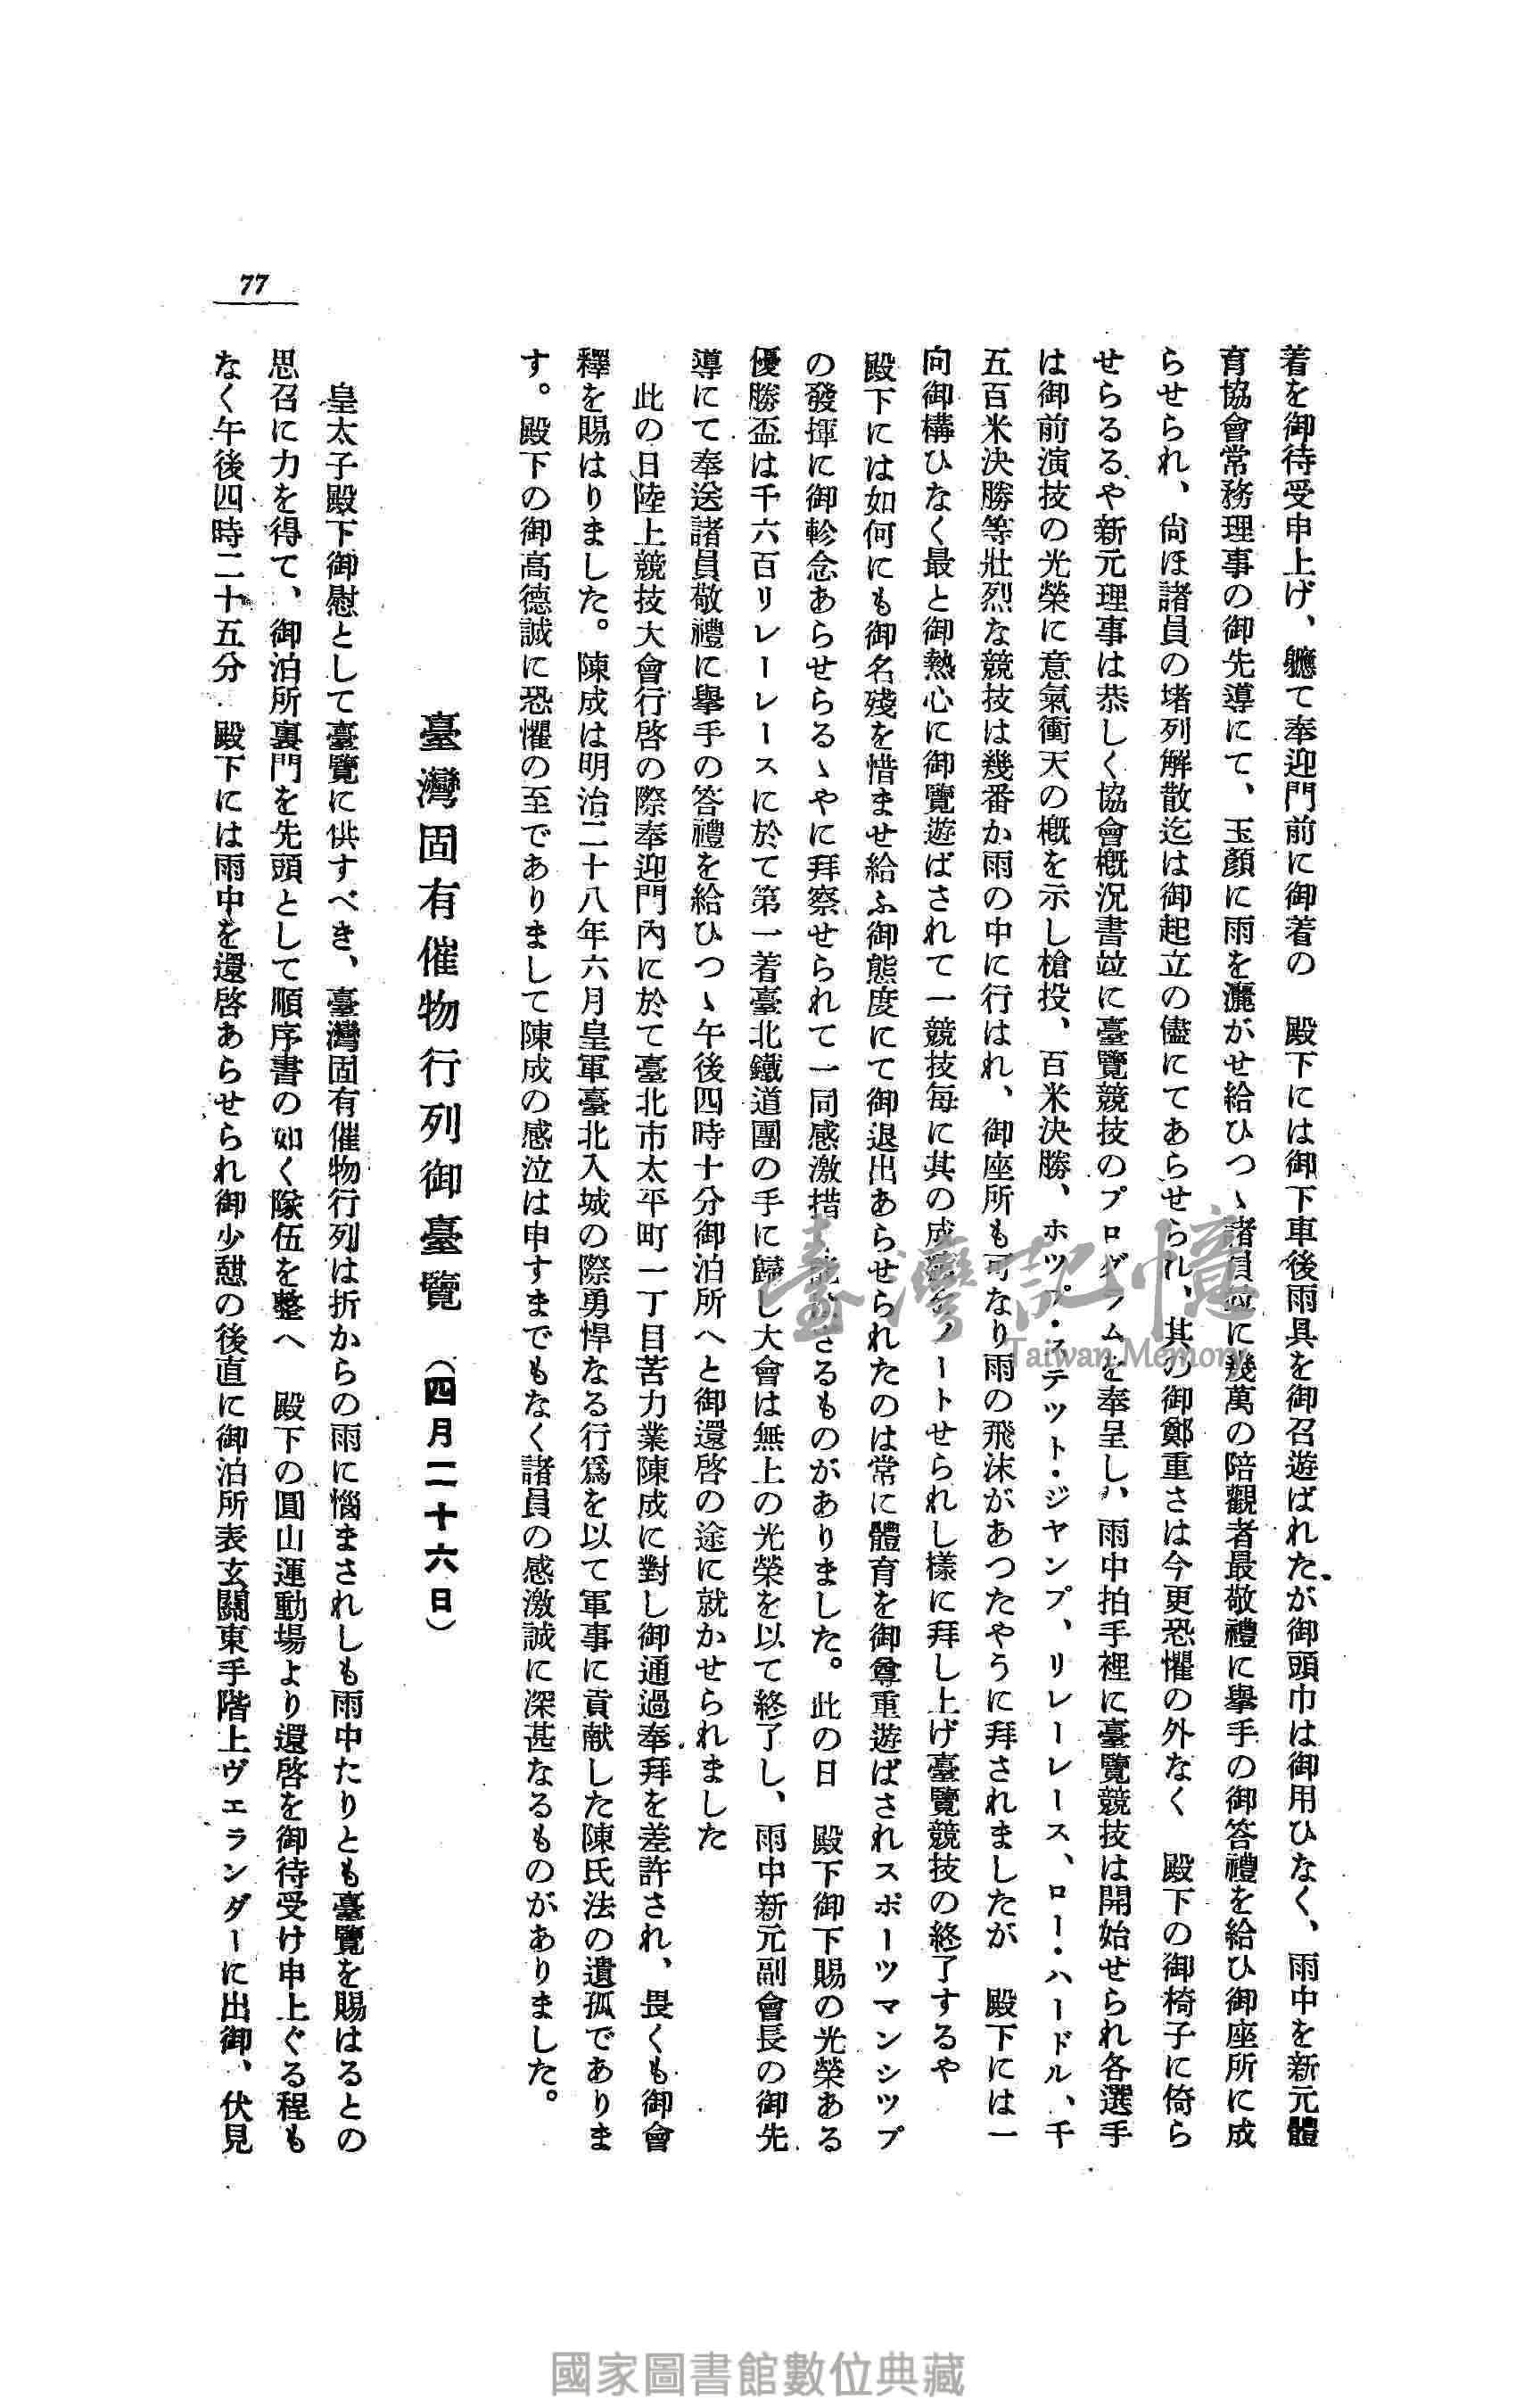 77
着を御待受申上げ、軈て奉迎門前に御着の　殿下には御下車後雨具を御召遊ばれたが御頭巾は御用ひなく、雨中を新元體
育協會常務理事の御先導にて、玉顏に雨を灑がせ給ひつゝ諸員竝に幾萬の陪觀者最敬禮に擧手の御答禮を給ひ御座所に成
らせられ、尙ほ諸員の堵列解散迄は御起立の儘にてあらせられ、其の御鄭重さは今更恐懼の外なく　殿下の御椅子に倚ら
せらるるや新元理事は恭しく協會槪況書竝に臺覽競技のプログラムを奉呈し、雨中拍手裡に臺覽競技は開始せられ各選手
は御前演技の光榮に意氣衝天の槪を示し槍投、百米決勝、ホツプ・ステツト・ジヤンプ、リレーレース、ロー・ハードル、千
五百米決勝等壯烈な競技は幾番か雨の中に行はれ、御座所も可なり雨の飛沫があつたやうに拜されましたが　殿下には一
向御構ひなく最と御熱心に御覽遊ばされて一競技每に其の成をノートせられし樣に拜し上げ臺覽競技の終了するや
殿下には如何にも御名殘を惜ませ給ふ御態度にて御退出あらせられたのは常に體育を御尊重遊ばされスポーツマンシツプ
の發揮に御軫念あらせらるゝやに拜察せられて一同感激措さるものがありました。此の日　殿下御下賜の光榮ある
優勝盃は千六百リレーレースに於て第一着臺北鐵道團の手に歸し大會は無上の光榮を以て終了し、雨中新元副會長の御先
導にて奉送諸員敬禮に擧手の答禮を給ひつゝ午後四時十分御泊所へと御還啓の途に就かせられました
此の日陸上競技大會行啓の際奉迎門內に於て臺北市太平町一丁目苦力業陳成に對し御通過奉拜を差許され、畏くも御會
釋を賜はりました。陳成は明治二十八年六月皇軍臺北入城の際勇悍なる行爲を以て軍事に貢獻した陳氏法の遺孤でありま
す。殿下の御高德誠に恐懼の至でありまして陳成の感泣は申すまでもなく諸員の感激誠に深甚なるものがありました。
臺灣固有催物行列御臺覽（四月二十六日）
皇太子殿下御慰として臺覽に供すべき、臺灣固有催物行列は折からの雨に惱まされしも雨中たりとも臺覽を賜はるとの
思召に力を得て、御泊所裏門を先頭として順序書の如く隊伍を整へ　殿下の圓山運動場より還啓を御待受け申上ぐる程も
なく午後四時二十五分　殿下には雨中を還啓あらせられ御少憩の後直に御泊所表玄關東手階上ヴエランダーに出御、伏見
臺灣記憶
Taiwan Memory
國家圖書館數位典藏